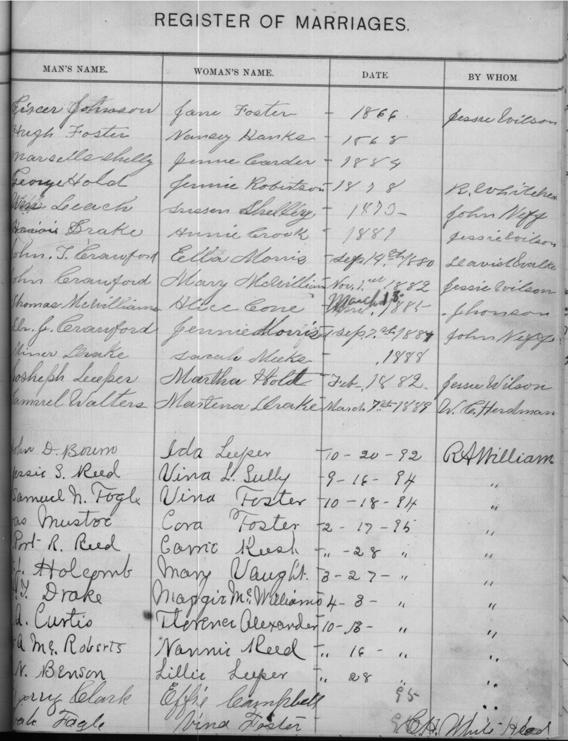 REGISTER OF MARRIAGES.
MAN'S NAME. WOMAN'S NAME. DATE BY WHOM
Johnson Jane Foster - 1866 Jessie Wilson
Hugh Foster Nancy Hanks - 1868
Shelly Jennie Carder - 1889
George Hold Jennie Robertson - 1878
Leeach Susson Shelley - 1873- John Neff
Drake Annie Crook - 1881 Jessie Wilson
John. T. Crawford Ella Morris - Sep. 14th 1880
John Crawford Mary McWilliams Nov. 1882 Jessie Wilson
Thomas McWilliams Alice Cone March 15 1885 Jhonson
J. Crawford Jennie Morris Sep 7th 1884 John Neff
Drake Sarah Meeks .1888
Josheph Leeper Martha Hold - Feb. 1882. Jesse Wilson
Walters Martena Drake March 7th 1889 W. C. Herdman
John D. Bourn Ida Leeper - 10 - 20 - 92 R A William
Jessie S. Reed Vina L. Sully - 9 - 16 - 94 "
Samuel N. Fogle Vina Foster - 10 - 18 - 94 "
Mustoe Cora Foster - 2 - 17 - 95 "
Port R. Reed Carrie Keesh - " - 28 " "
Holcomb Mary Vaught. - 3 - 27 - " "
Drake Maggie McWilliams - 4 - 3 - " "
Curtis Florence Alexander - 10 - 13 - " "
Mc. Roberts Nannie Reed - " 16 - " "
N. Benson Lillie Leeper - " 28 " "
Clark Effie Campbell 95 "
Fagle Vina Foster C.H. White Head